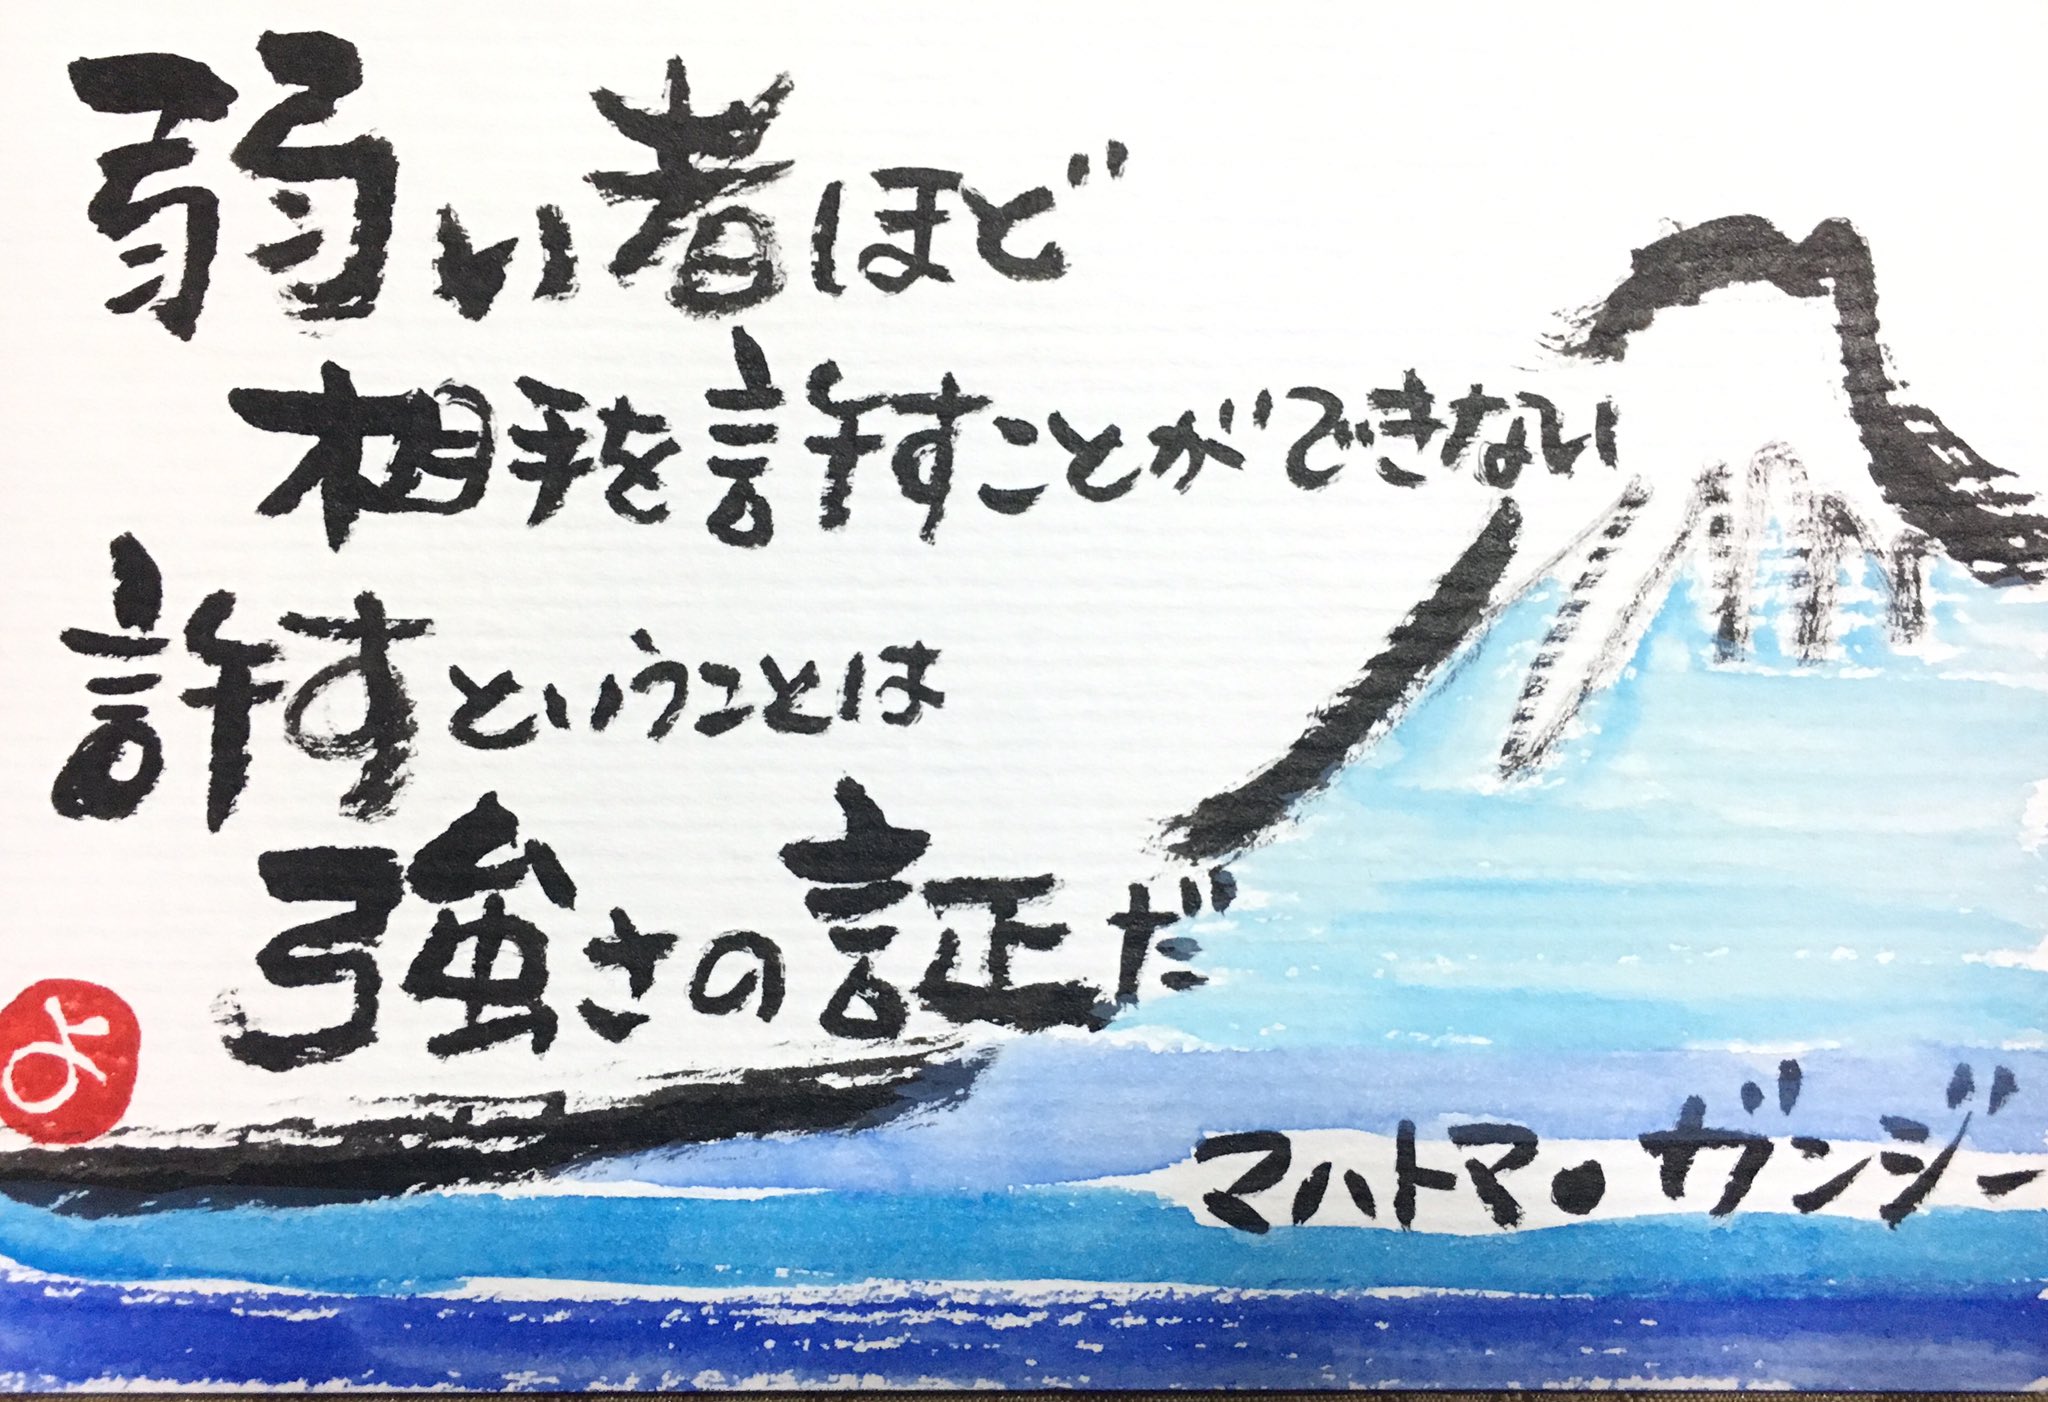 弱い者ほど
相手を許すことができない
許すということは
強さの証だ
よ
マハトマ・ガンジー